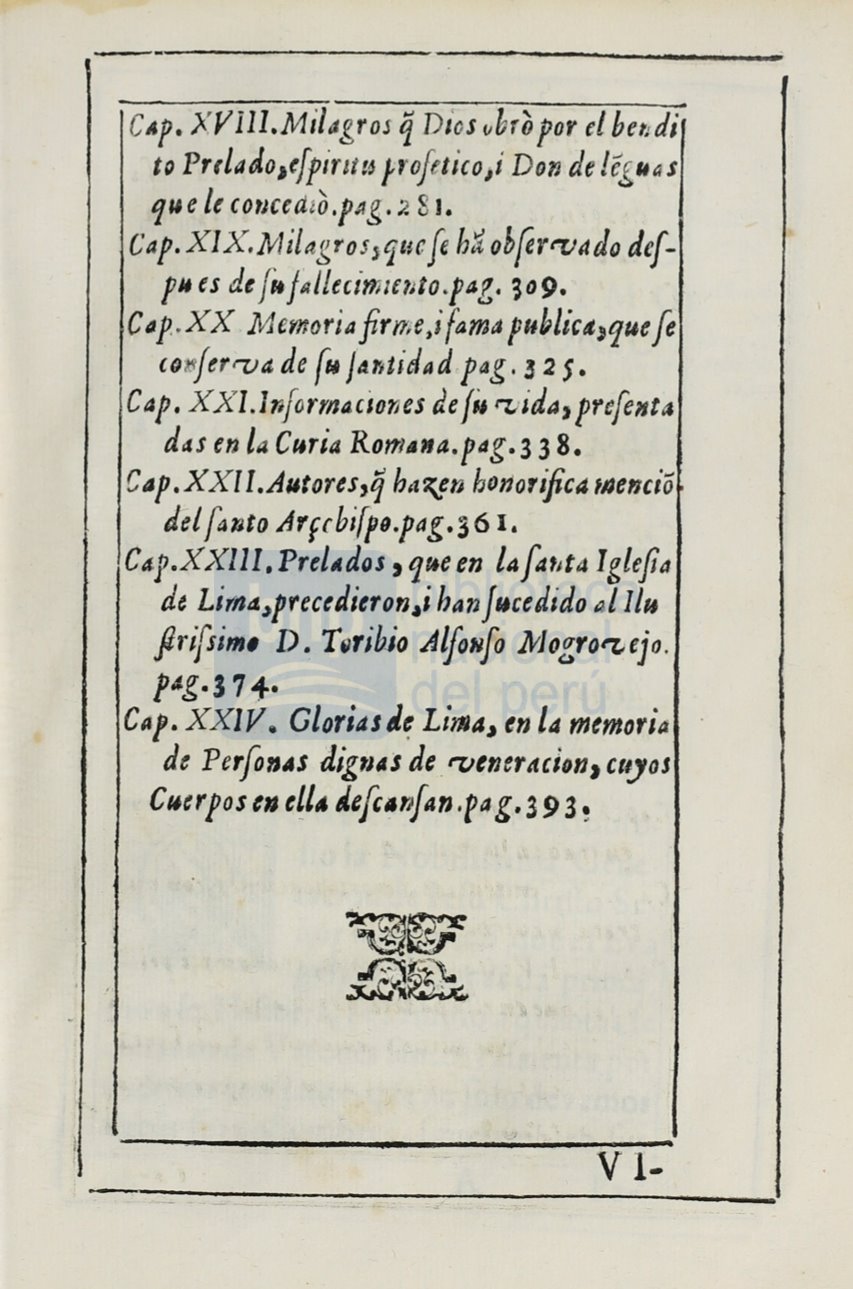 Cap. XVIII. Milagros q̃ Dios obrò por el bendi
to Prelado, eſpiritu profetico, i Don de lẽguas
que le concediò. pag. 281.
Cap. XIX. Milagros, que ſe hã obſervado deſ-
pues de ſu fallecimiento. pag. 309.
Cap. XX Memoria firme, i fama publica, que ſe
conſerva de ſu ſantidad pag. 325.
Cap. XXI. Informaciones de ſu vida, preſenta
das en la Curia Romana. pag. 338.
Cap. XXII. Autores, q̃ hazen honorifica menciõ
del ſanto Arçcbiſpo. pag. 361.
Cap. XXIII. Prelados, que en la ſanta Igleſia
de Lima, precedieron, i han ſucedido al Ilu
ſtriſsimo D. Toribio Alfonſo Mogrovejo.
pag. 374.
Cap. XXIV. Glorias de Lima, en la memoria
de Perſonas dignas de veneracion, cuyos
Cuerpos en ella deſcanſan. pag. 393.
VI-
biblioteca
nacional
del perú